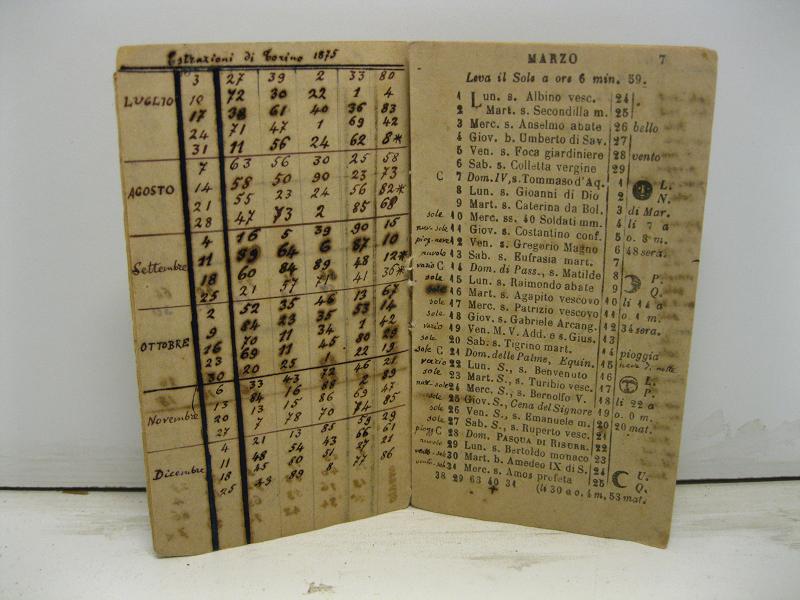 Estrazioni di Torino 1875
3 27 39 2 33 80
LUGLIO 10 72 30 22 1 4
17 38 61 40 36 83
24 71 47 1 69 42
31 11 56 24 62 8*
7 63 56 30 25 58
AGOSTO 14 58 50 90 23 73
21 55 23 24 56 82*
28 47 73 2 85 68
4 16 5 39 90 15
Settembre 11 89 64 6 87 10
18 60 84 89 48 12*
25 21 57 71 41 36*
2 52 35 46 13 67
9 84 23 35 53 14
OTTOBRE 16 70 11 34 1 42
23 69 11 45 80 29
30 20 25 1 22 19
6 33 43 72 46 21
Novembre 13 84 16 88 2 89
20 13 15 86 69 47
27 7 78 70 74 85
4 21 13 85 59 29
Dicembre 11 48 54 43 66 61
18 45 80 51 27 21
25 49 89 8 77 86
MARZO 7
Leva il Sole a ore 6 min. 59.
1 Lun. s. Albino vesc. 24
2 Mart. s. Secondilla m. 25
3 Merc. s. Anselmo abate 26 bello
4 Giov. b. Umberto di Sav. 27
5 Ven. s. Foca giardiniere 28 vento
6 Sab. s. Colletta vergine 29
C 7 Dom. IV, s. Tommaso d'Aq. 1 L.
8 Lun. s. Gioanni di Dio 2 N.
9 Mart. s. Caterina da Bol. 3 di Mar.
sole 10 Merc. ss. 40 Soldati mm. 4 li 7 a
nuv. sole 11 Giov. s. Costantino conf. 5 o. 8 m.
piog. neve 12 Ven. s. Gregorio Magno 6 48 sera.
nuvolo 13 Sab. s. Eufrasia mart. 7
vario C 14 Dom. di Pass., s. Matilde 8 P.
sole 15 Lun. s. Raimondo abate 9 Q.
sole 16 Mart. s. Agapito vescovo 10 li 14 a
sole 17 Merc. s. Patrizio vescovo 11 o. 1 m.
sole 18 Giov. s. Gabriele Arcang. 12 34 sera.
vario 19 Ven. M. V. Add. e s. Gius. 13
sole 20 Sab. s. Tigrino mart. 14 pioggia
sole C 21 Dom. delle Palme, Equin. 15
vario 22 Lun. S., s. Benvenuto 16 L.
sole 23 Mart. S., s. Turibio vesc. 17 P.
nuv. sole 24 Merc. S., s. Bernolfo V. 18 li 22 a
sole 25 Giov. S., Cena del Signore 19 o. 0 m.
sole 26 Ven. S., s. Emanuele m. 20 20 mat.
sole 27 Sab. S., s. Ruperto vesc. 21
piog. C 28 Dom. PASQUA DI RISURR. 22
nuvolo 29 Lun. s. Bertoldo monaco 23
30 Mart. b. Amedeo IX di S. 24 U.
31 Merc. s. Amos profeta 25 Q.
38 29 63 40 31 (li 30 a o. 4 m, 53 mat.